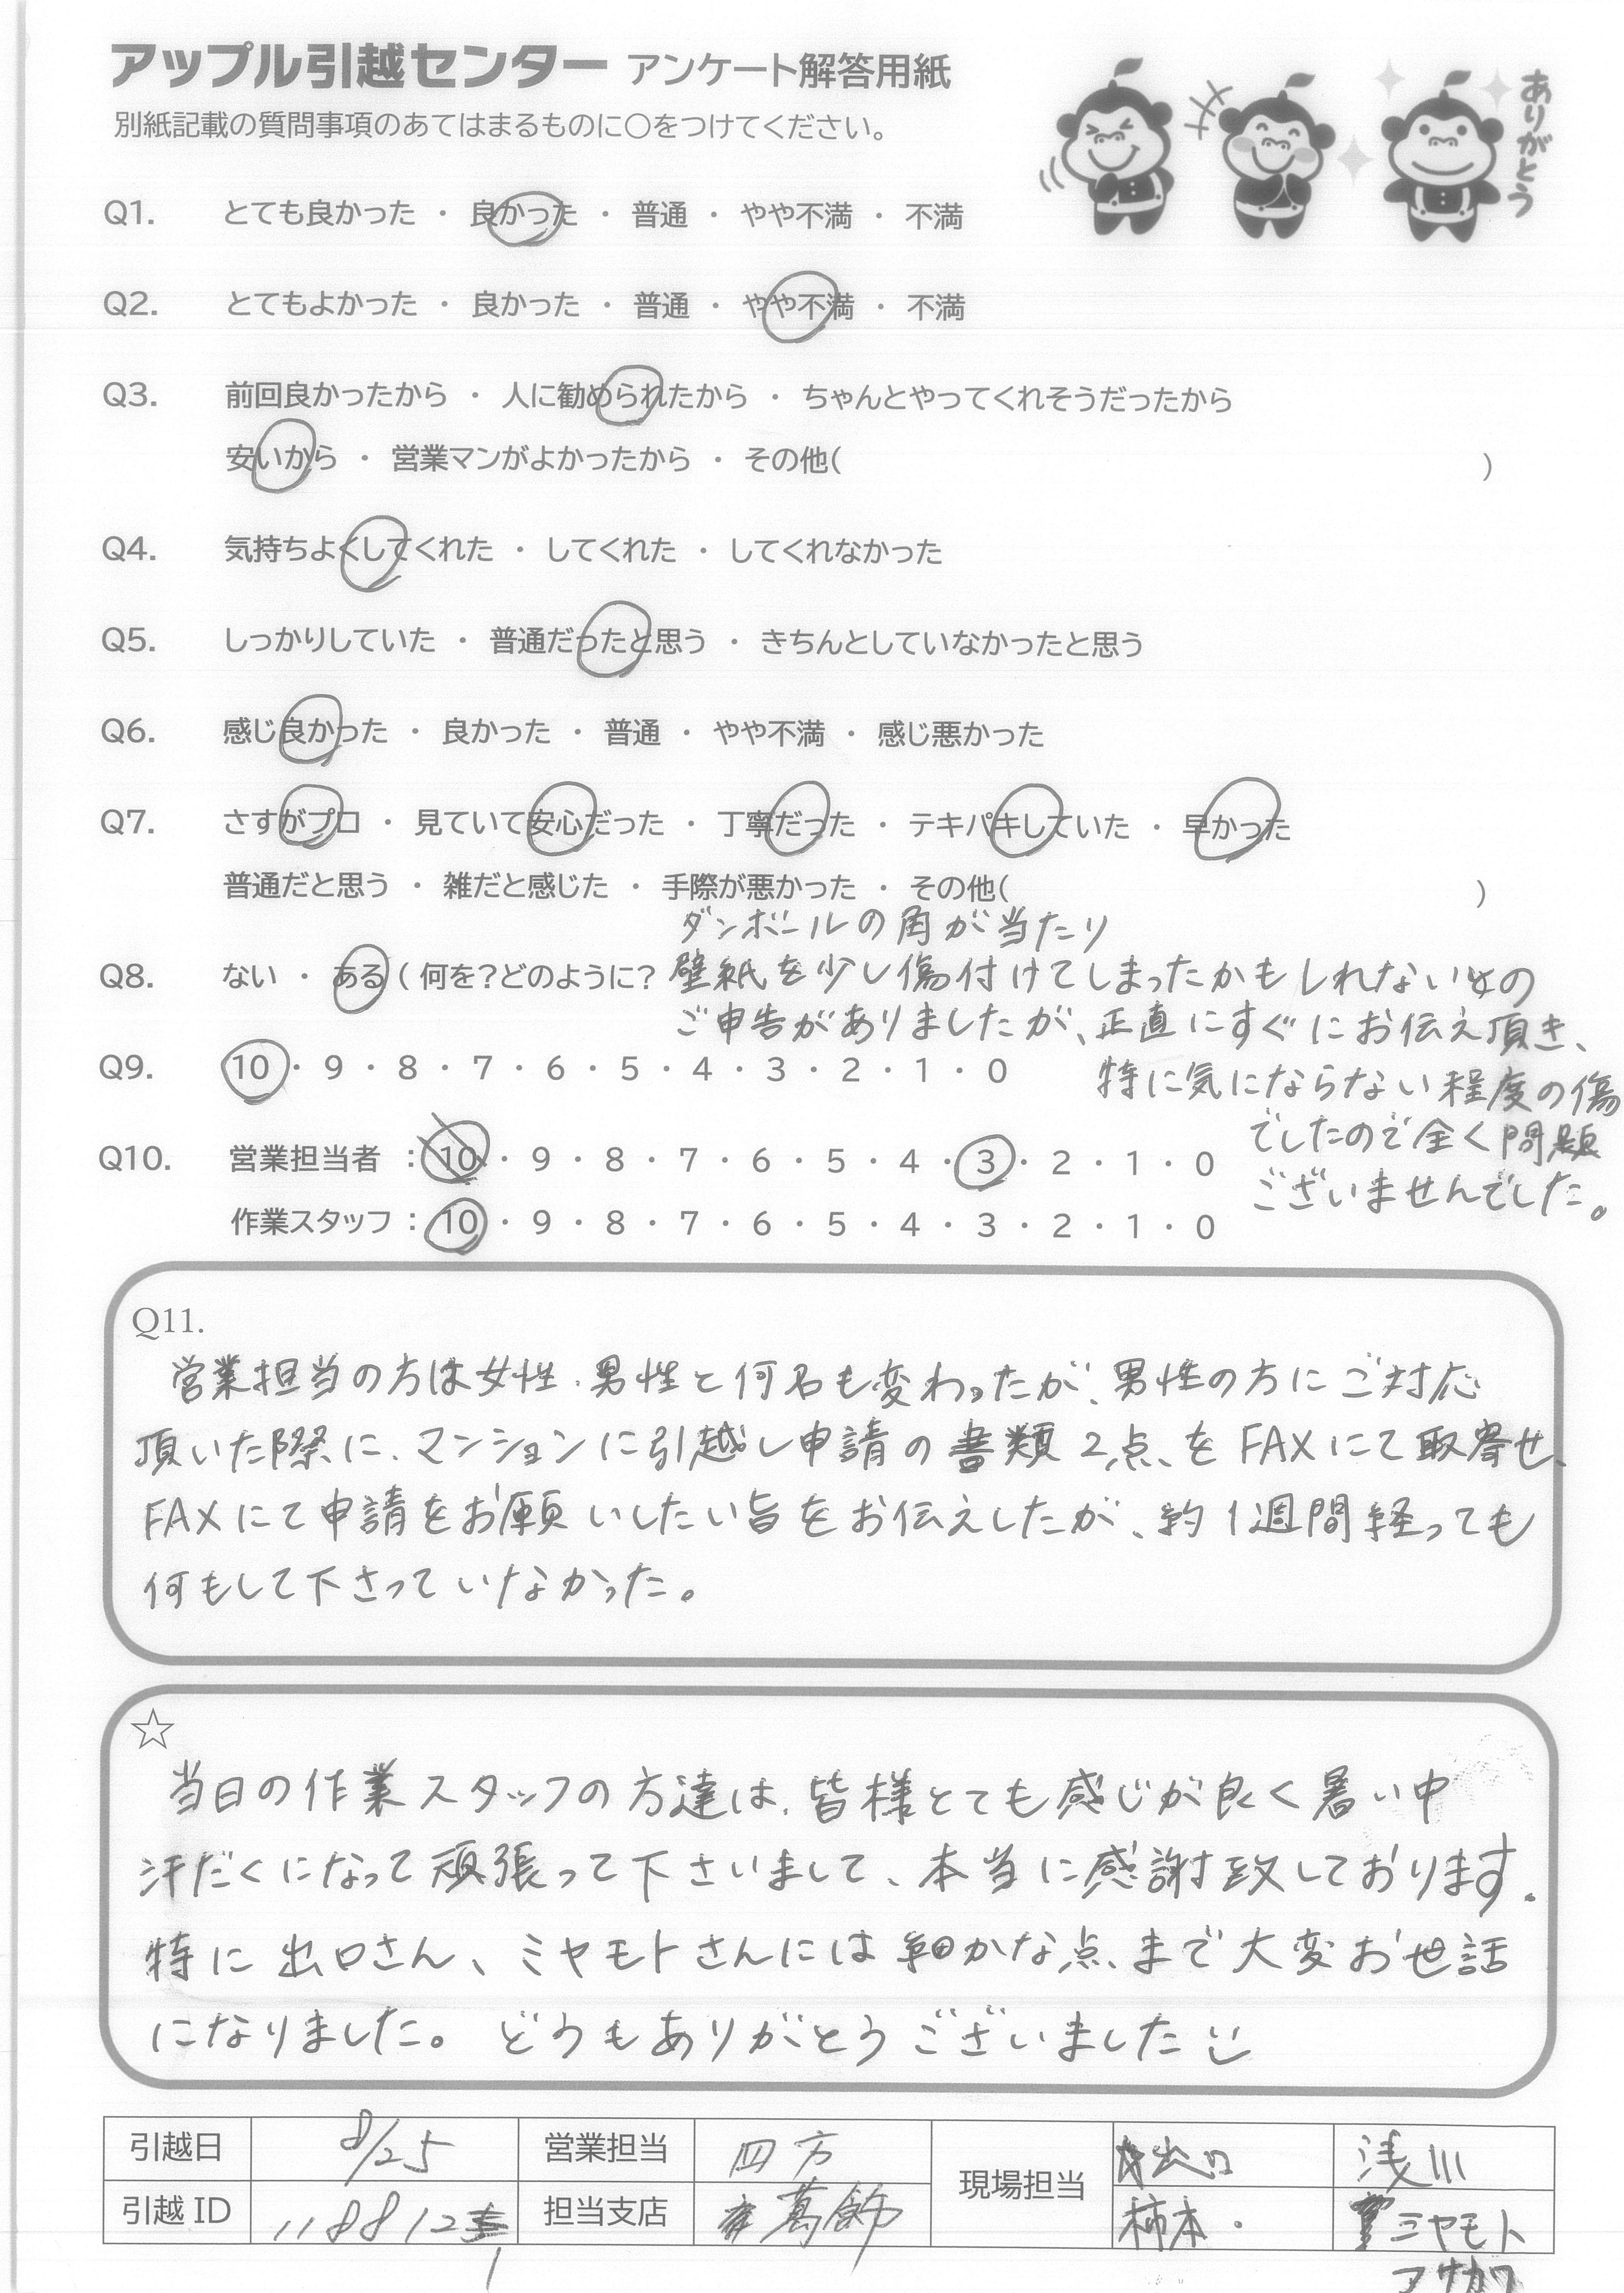 アップル引越センター アンケート解答用紙
別紙記載の質問事項のあてはまるものに○をつけてください。
ありがとう
Q1. とても良かった ・ 良かった ・ 普通 ・ やや不満 ・ 不満
Q2. とてもよかった ・ 良かった ・ 普通 ・ やや不満 ・ 不満
Q3. 前回良かったから ・ 人に勧められたから ・ ちゃんとやってくれそうだったから
安いから ・ 営業マンがよかったから ・ その他( )
Q4. 気持ちよくしてくれた ・ してくれた ・ してくれなかった
Q5. しっかりしていた ・ 普通だったと思う ・ きちんとしていなかったと思う
Q6. 感じ良かった ・ 良かった ・ 普通 ・ やや不満 ・ 感じ悪かった
Q7. さすがプロ ・ 見ていて安心だった ・ 丁寧だった ・ テキパキしていた ・ 早かった
普通だと思う ・ 雑だと感じた ・ 手際が悪かった ・ その他( )
ダンボールの角が当たり
Q8. ない ・ ある ( 何を?どのように? 壁紙を少し傷付けてしまったかもしれないとの
ご申告がありましたが、正直にすぐにお伝え頂き、
Q9. 10 ・ 9 ・ 8 ・ 7 ・ 6 ・ 5 ・ 4 ・ 3 ・ 2 ・ 1 ・ 0
特に気にならない程度の傷
でしたので全く問題
Q10. 営業担当者 : 10 ・ 9 ・ 8 ・ 7 ・ 6 ・ 5 ・ 4 ・ 3 ・ 2 ・ 1 ・ 0
ございませんでした。
作業スタッフ : 10 ・ 9 ・ 8 ・ 7 ・ 6 ・ 5 ・ 4 ・ 3 ・ 2 ・ 1 ・ 0
Q11.
営業担当の方は女性、男性と何名も変わったが、男性の方にご対応
頂いた際に、マンションに引越し申請の書類2点をFAXにて取寄せ、
FAXにて申請をお願いしたい旨をお伝えしたが、約1週間経っても
何もして下さっていなかった。
☆
当日の作業スタッフの方達は、皆様とても感じが良く暑い中
汗だくになって頑張って下さいまして、本当に感謝致しております。
特に出口さん、ミヤモトさんには細かな点まで大変お世話
になりました。どうもありがとうございました
引越日 8/25 営業担当 四方 現場担当 出口 浅川
引越ID 118812 担当支店 葛飾 柿本 ミヤモト
1
アサカワ